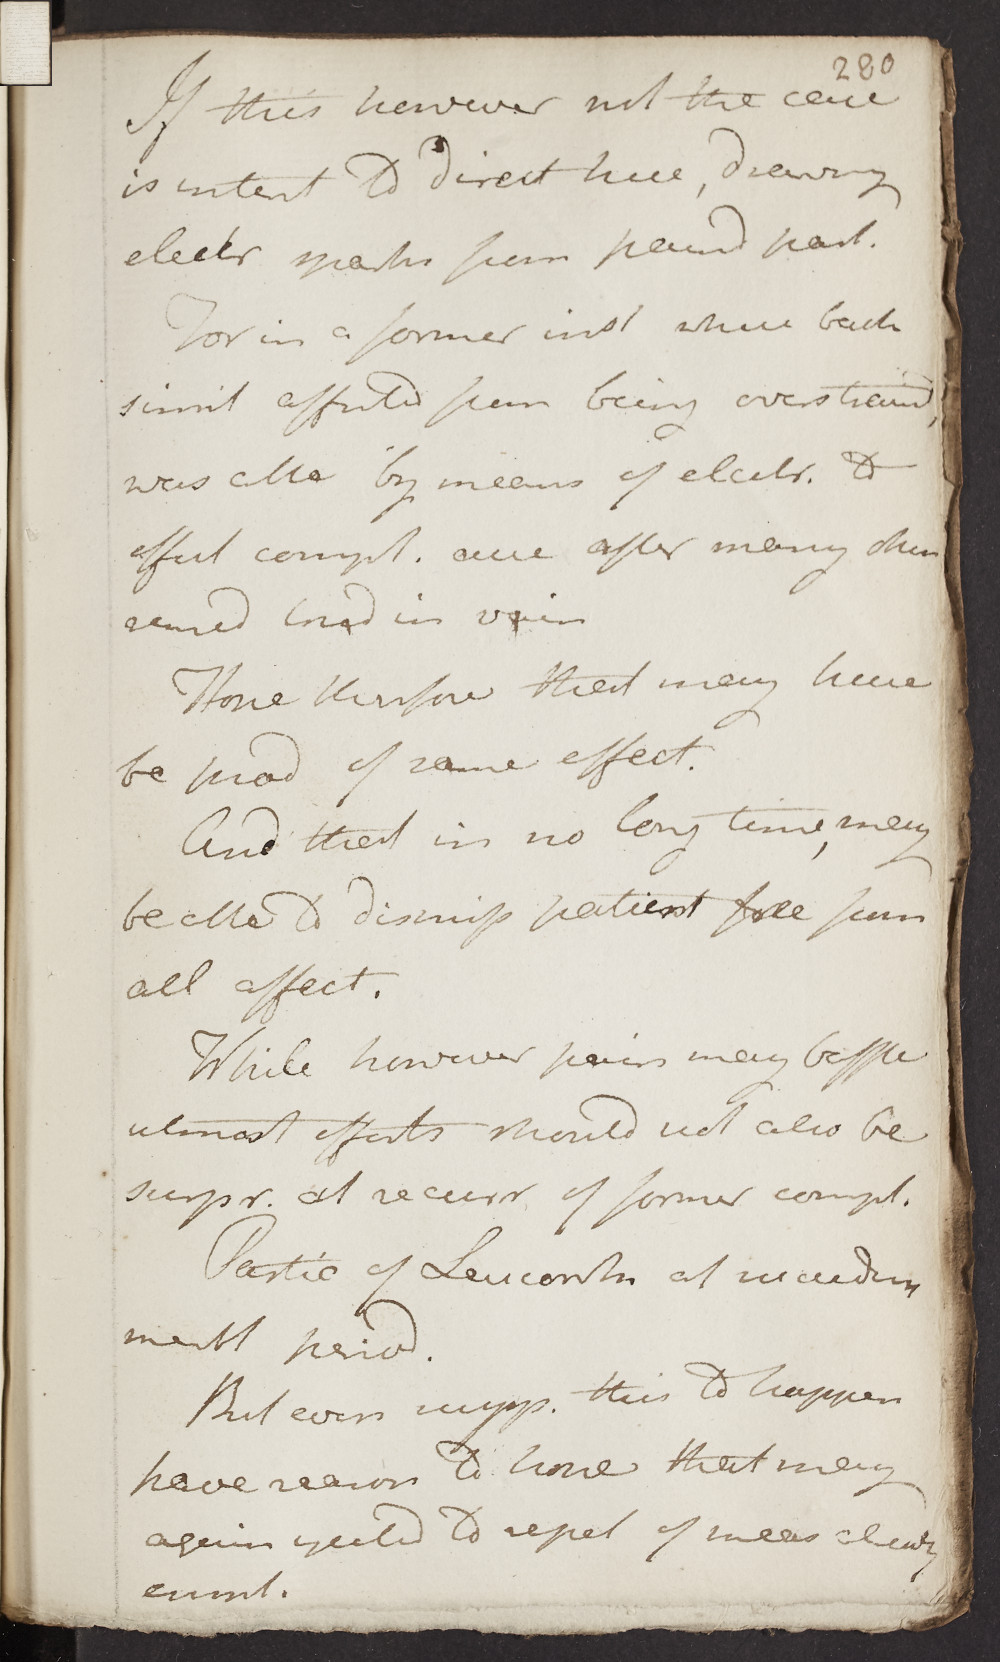 280
If this however not the case
is intent to direct here, drawing
electr sparks from pained part.
For in a former inst where back
simil affected from being overstrained,
was able by means of electr. to
effect compl. cure after many other
remed tried in vain
Hope therefore that may here
be prod of same effect.
And that in no long time, may
be able to dismiss patient free from
all affect.
While however pain may baffle
utmost efforts should not also be
surpr. at recurr. of former compl.
Partic of Leucorrh at
menstl period.
But even supp. this to happen
have reason to hope that may
again yield to repet of meas already
empl.